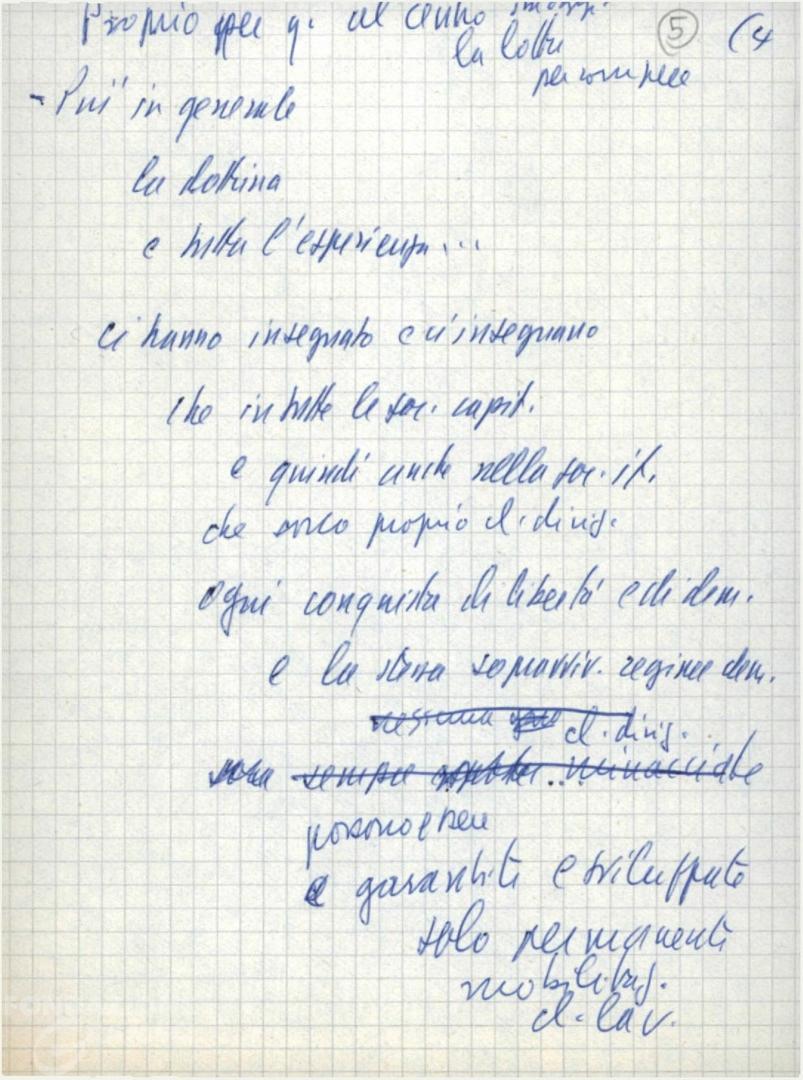 Proprio per q. al centro
la lotta
per rompere
5 (4
- Piu' in generale
la dottrina
e tutta l'esperienza...
ci hanno insegnato e ci insegnano
che in tutte le soc. capit.
e quindi anche nella soc. it.
che proprio cl. dirig.
ogni conquista di libertà e di dem.
e la stessa sopravviv. regime dem.
nessuna cl. dirig.
sono sempre minacciate
possono essere
e garantite e sviluppate
solo permanenti
mobilitaz.
cl. lav.